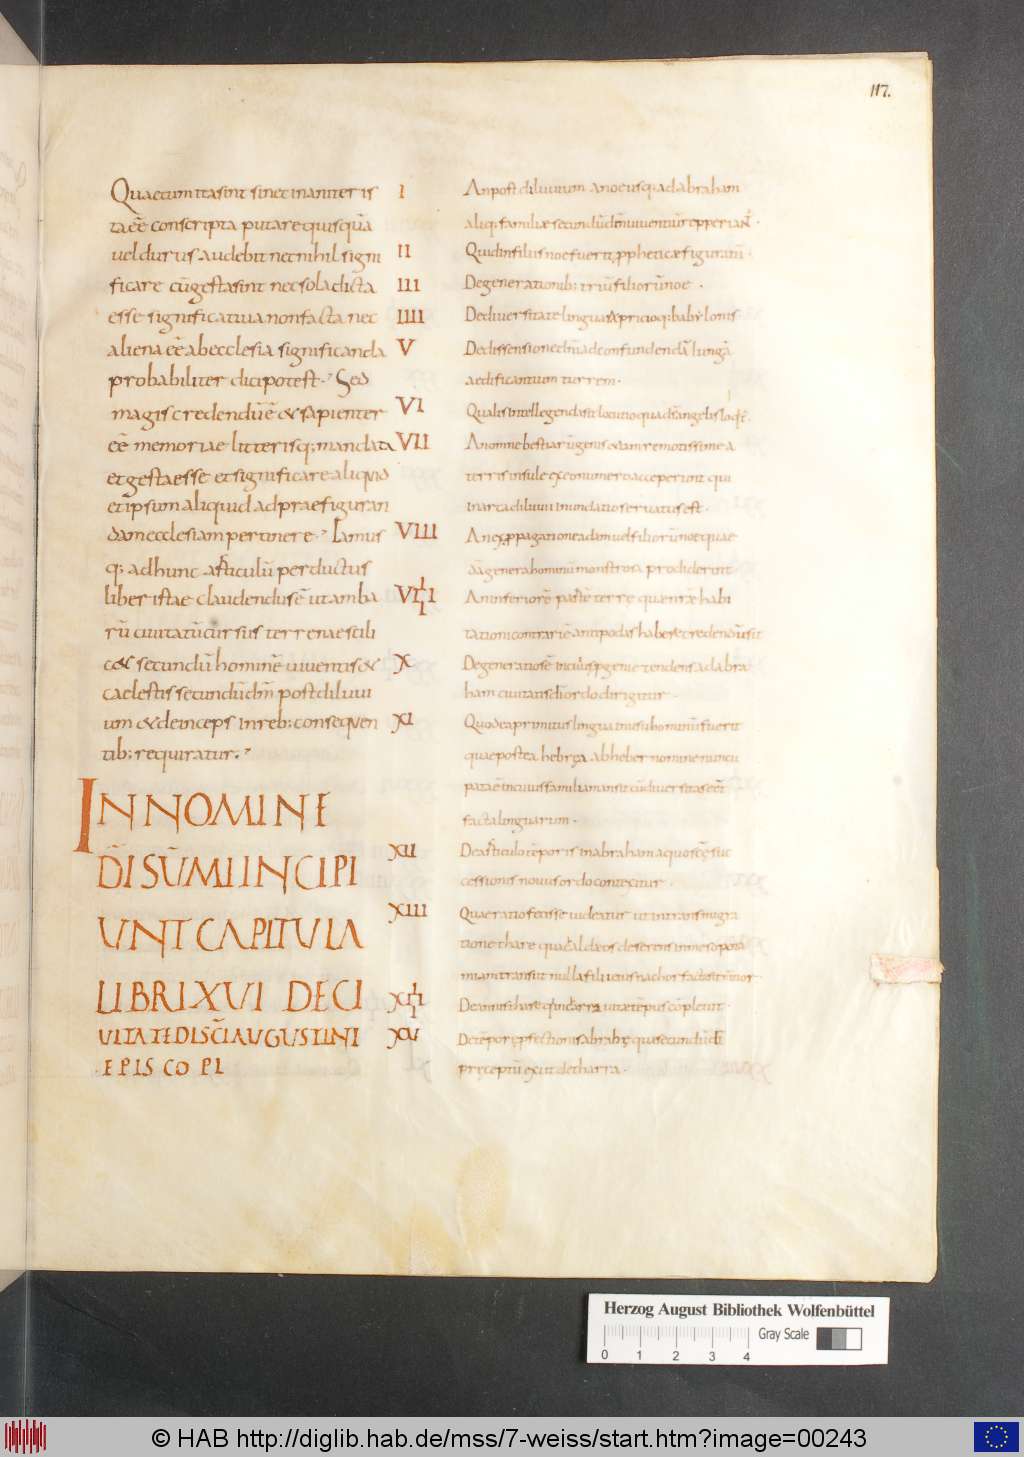 117.
Quaecum ita sint si nec inaniter is
ta eē conscripta putare quisquā
uel durus audebit nec nihil signi
ficare cū gesta sint nec sola dicta
esse significatiua non facta nec
aliena eē ab ecclesia significanda
probabiliter dici potest. Sed
magis credendū ē & sapienter
eē memoriae litterisq; mandata
et gesta esse et significare aliquid
et ipsum aliquid ad praefiguran
dam ecclesiam pertinere. Iamus
q; ad hunc articulū perductus
liber iste claudendus ē ut amba
rū ciuitatū cursus terrenae scili
c& secundū hominē uiuentis &
caelestis secundū dm̄ post diluui
um & deinceps in reb; consequen
tib; requiratur.
IN NOMINE
DĪ SŪMI INCIPI
UNT CAPITULA
LIBRI XVI DE CI
UITATE DI SC̄I AUGUSTINI
EPISCOPI
I An post diluuium a noe usq; ad abraham
aliq; familiae secundū dm̄ uiuentiū repperiant.
II Quid in filiis noe fuerit pphetice figuratū.
III De generationib; triū filiorū noe.
IIII De diuersitate linguarū principioq; babylonis
V De dissensione dm̄ ad confundendā linguā
aedificantium turrem.
VI Qualis intellegenda sit locutio qua ds̄ angelis loq̄t.
VII An omne bestiarū genus &iam remotissime a
terris insule ex eo numero acceperint qui
in arca diluuii inundatio seruatus est.
VIII An ex ppagatione adam uel filiorū noe quae
dā genera hominū monstrosa prodiderint
VIIII An inferiorē partē terre quae nrāe habi
tationi contraria ē antipodas habere credendū sit
X De generatione sem in cuius pgenie tendens ad abra
ham ciuitatis dī ordo dirigitur.
XI Quod ea primitus lingua in usu hominū fuerit
quae postea hebrea ab heber nomine nuncu
pata ē in cuius familia mansit cū diuersitas eēt
facta linguarum.
XII De articulo tēporis in abraham a quo scē suc
cessionis nouus ordo contexitur.
XIII Quae ratio fecisse uideatur ut in transmigra
tione thare qua chaldeos deserens in mesopota
miam transiit nulla filii eius nachor facta sit mtio.
XIIII De annis thare qui in charra uitae tēpus cōpleuit.
XV De tēpore pfectionis abrahe qui secundū dī
preceptū exiit de tharra.
Herzog August Bibliothek Wolfenbüttel
Gray Scale
0 1 2 3 4
© HAB http://diglib.hab.de/mss/7-weiss/start.htm?image=00243